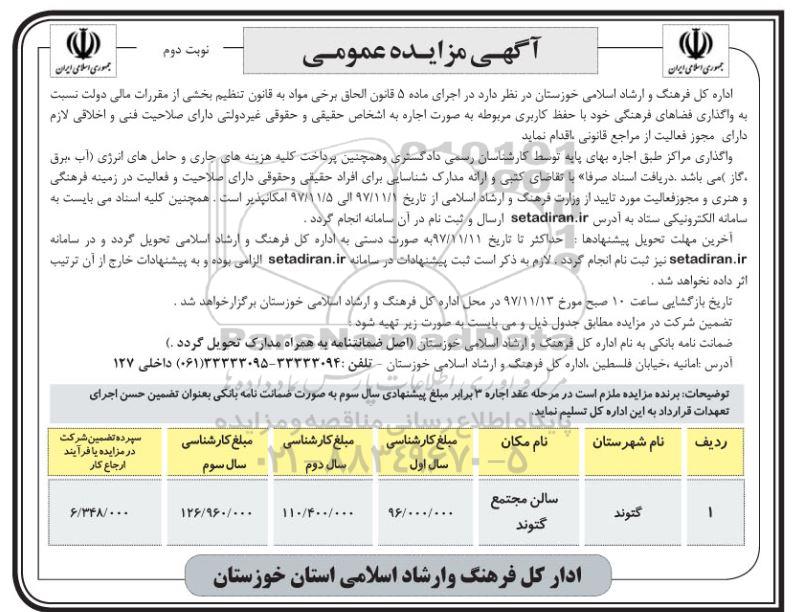 آگهی مزایده عمومی
نوبت دوم
جمهوری اسلامی ایران
جمهوری اسلامی ایران
اداره کل فرهنگ و ارشاد اسلامی خوزستان در نظر دارد در اجرای ماده ۵ قانون الحاق برخی مواد به قانون تنظیم بخشی از مقررات مالی دولت نسبت
به واگذاری فضاهای فرهنگی خود با حفظ کاربری مربوطه به صورت اجاره به اشخاص حقیقی و حقوقی غیردولتی دارای صلاحیت فنی و اخلاقی لازم
دارای مجوز فعالیت از مراجع قانونی ،اقدام نماید
واگذاری مراکز طبق اجاره بهای پایه توسط کارشناسان رسمی دادگستری وهمچنین پرداخت کلیه هزینه های جاری و حامل های انرژی (آب ،برق
،گاز )می باشد .دریافت اسناد صرفا» با تقاضای کتبی و ارائه مدارک شناسایی برای افراد حقیقی وحقوقی دارای صلاحیت و فعالیت در زمینه فرهنگی
و هنری و مجوزفعالیت مورد تایید از وزارت فرهنگ و ارشاد اسلامی از تاریخ ۹۷/۱۱/۱ الی ۹۷/۱۱/۵ امکانپذیر است . همچنین کلیه اسناد می بایست به
سامانه الکترونیکی ستاد به آدرس setadiran.ir ارسال و ثبت نام در آن سامانه انجام گردد .
آخرین مهلت تحویل پیشنهادها : حداکثر تا تاریخ ۹۷/۱۱/۱۱به صورت دستی به اداره کل فرهنگ و ارشاد اسلامی تحویل گردد و در سامانه
setadiran.ir نیز ثبت نام انجام گردد ، لازم به ذکر است ثبت پیشنهادات در سامانه setadiran.ir الزامی بوده و به پیشنهادات خارج از آن ترتیب
اثر داده نخواهد شد .
تاریخ بازگشایی ساعت ۱۰ صبح مورخ ۹۷/۱۱/۱۳ در محل اداره کل فرهنگ و ارشاد اسلامی خوزستان برگزارخواهد شد .
تضمین شرکت در مزایده مطابق جدول ذیل و می بایست به صورت زیر تهیه شود :
ضمانت نامه بانکی به نام اداره کل فرهنگ و ارشاد اسلامی خوزستان (اصل ضمانتنامه به همراه مدارک تحویل گردد .)
آدرس :امانیه ،خیابان فلسطین ،اداره کل فرهنگ و ارشاد اسلامی خوزستان - تلفن :۳۳۳۳۳۰۹۴-۳۳۳۳۳۰۹۵(۰۶۱) داخلی ۱۲۷
توضیحات: برنده مزایده ملزم است در مرحله عقد اجاره ۳ برابر مبلغ پیشنهادی سال سوم به صورت ضمانت نامه بانکی بعنوان تضمین حسن اجرای
تعهدات قرارداد به این اداره کل تسلیم نماید.
ردیف نام شهرستان نام مکان مبلغ کارشناسی سال اول مبلغ کارشناسی سال دوم مبلغ کارشناسی سال سوم سپرده تضمین شرکت در مزایده یا فرآیند ارجاع کار
۱ گتوند سالن مجتمع گتوند ۹۶/۰۰۰/۰۰۰ ۱۱۰/۴۰۰/۰۰۰ ۱۲۶/۹۶۰/۰۰۰ ۶/۳۴۸/۰۰۰
ادار کل فرهنگ وارشاد اسلامی استان خوزستان
ParsNamadData
پایگاه اطلاع رسانی مناقصه و مزایده
۰۲۱-۸۸۳۴۹۶۷۰-۵